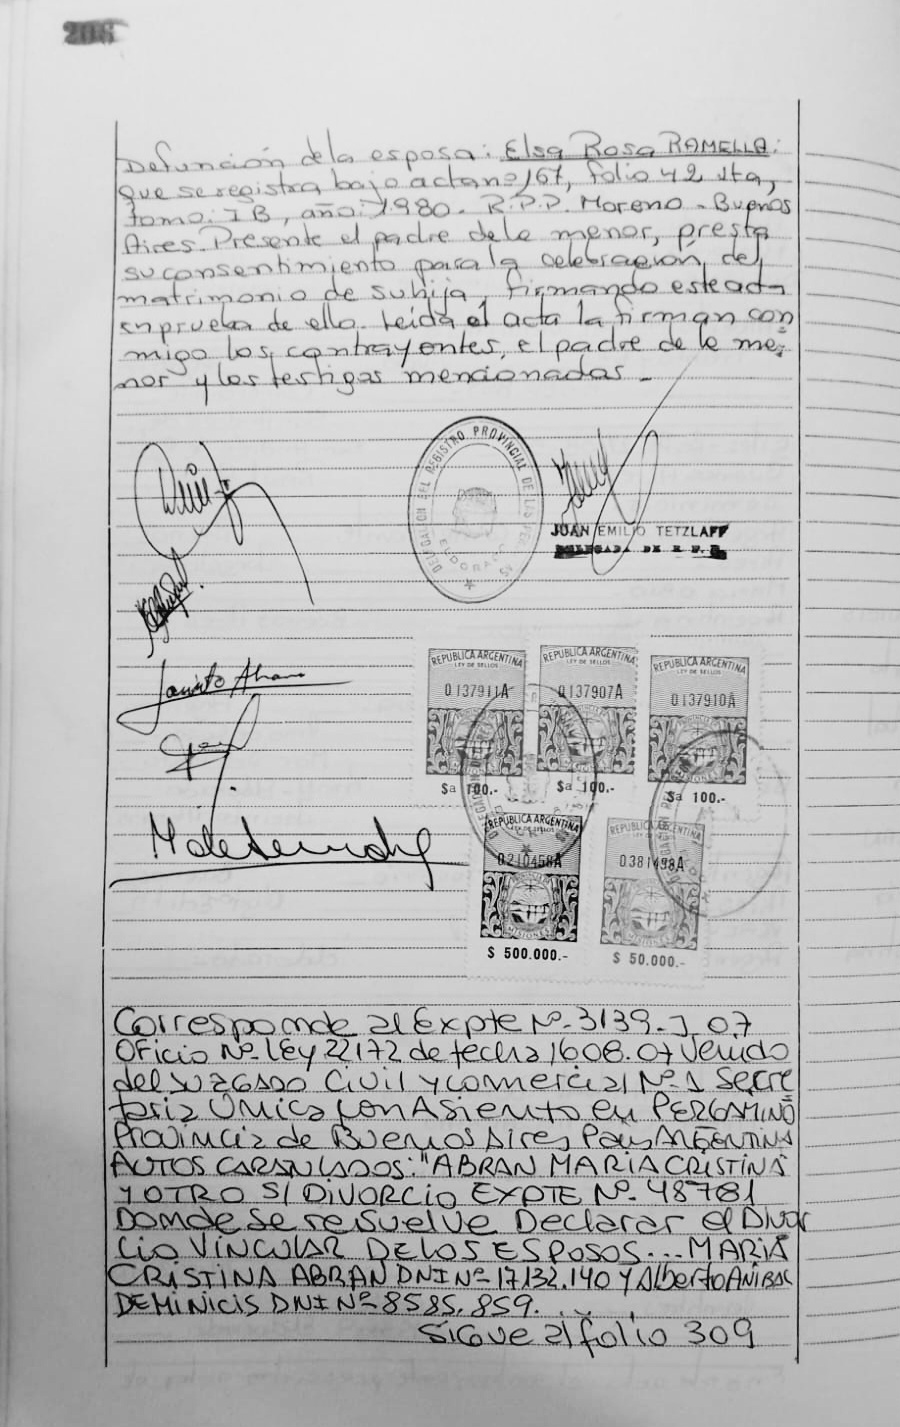 206
Defunción de la esposa: Elsa Rosa RAMELLA:
que se registra bajo acta nº 167, folio 42 vta,
tomo: I B, año: 1980. R.P.P. Moreno - Buenos
Aires. Presente el padre de la menor, presta
su consentimiento para la celebración del
matrimonio de su hija, firmando este acta
en prueba de ello. Leida el acta la firman con
migo los contrayentes, el padre de la me,
nor y los testigos mencionadas. -
DELEGACION DEL REGISTRO PROVINCIAL DE LAS PERSONAS
ELDORADO
JUAN EMILIO TETZLAFF
DELEGADA DE R. P.
Jacinto Abran
REPUBLICA ARGENTINA
LEY DE SELLOS
0137911A
MISIONES
$a 100.-
REPUBLICA ARGENTINA
LEY DE SELLOS
0137907A
MISIONES
$a 100.-
REPUBLICA ARGENTINA
LEY DE SELLOS
0137910A
MISIONES
$a 100.-
REPUBLICA ARGENTINA
LEY DE SELLOS
0210458A
MISIONES
$ 500.000.-
REPUBLICA ARGENTINA
LEY DE SELLOS
0381498A
MISIONES
$ 50.000.-
Corresponde al Expte Nº- 3139-J 07
Oficio Nº- Ley 22172 de fecha 1608.07 venido
del JUZGADO Civil y comercial Nº 1 Secre
taria Única con Asiento en PERGAMINO
Provincia de Buenos Aires, Pais ARGENTINA
AUTOS CARATULADOS: "ABRAN MARIA CRISTINA
Y OTRO S/ DIVORCIO EXPTE Nº- 48781
Donde se resuelve Declarar el Divor
cio VINCULAR DE LOS ESPOSOS... MARIA
CRISTINA ABRAN DNI Nº 17.132.140 Y Alberto ANIBAL
DEMINICIS DNI Nº 8585.859. . . .
Sigue al folio 309